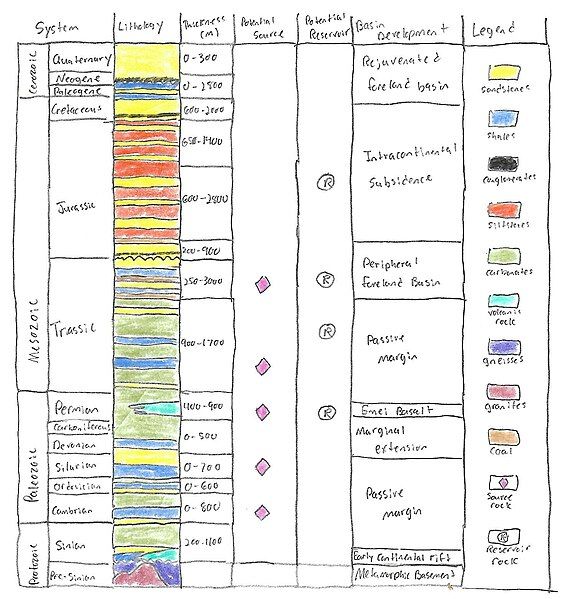 System
Lithology
Thickness
(m)
Potential
Source
Potential
Reservoir
Basin
Development
Legend
Cenozoic
Quaternary
Neogene
Paleogene
Mesozoic
Cretaceous
Jurassic
Trassic
Paleozoic
Permian
Carboniferous
Devonian
Silurian
Ordovician
Cambrian
Sinian
Pre-Sinian
0-300
0-2500
600-2000
650-1400
600-2800
200-900
250-3000
900-1700
400-900
0-500
0-700
0-600
0-800
200-1100
R
R
R
R
Rejuvenated
foreland basin
Intracontinental
Subsidence
Peripheral
Foreland Basin
Passive
margin
Emei Basalt
Marginal
extension
Passive
margin
Early continental rift
Metamorphic Basement
sandstones
shales
conglomerates
Siltstones
carbonates
volcanic
rock
gneisses
granites
Coal
Source
rock
R
Reservoir
rock